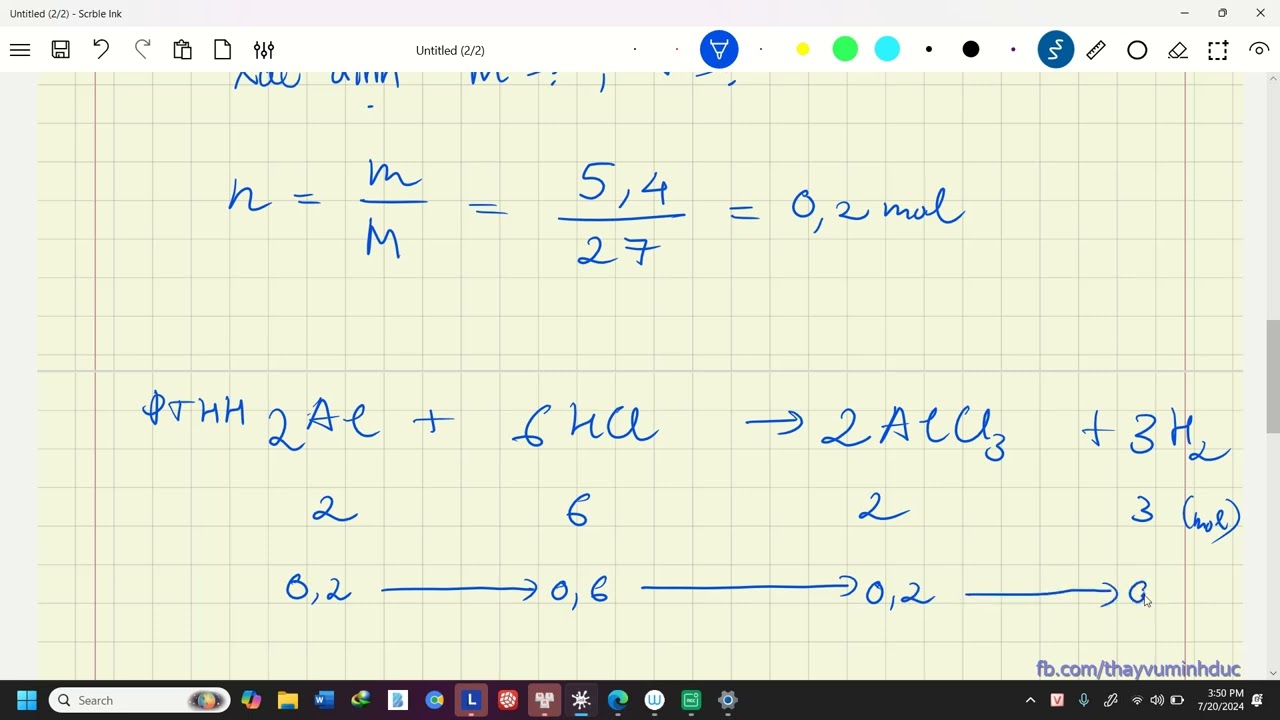 Untitled (2/2) - Scrble Ink
Untitled (2/2)
n = m/M = 5,4/27 = 0,2 mol
PTHH 2Al + 6HCl → 2AlCl₃ + 3H₂
2 6 2 3 (mol)
0,2 → 0,6 → 0,2 → 0
fb.com/thayvuminhduc
Search
3:50 PM
7/20/2024